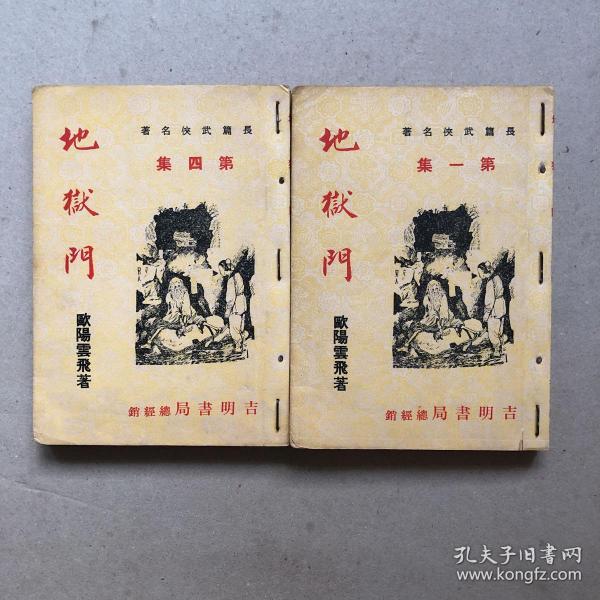 長篇武俠名著
第四集
地獄門
歐陽雲飛著
吉明書局總經銷
長篇武俠名著
第一集
地獄門
歐陽雲飛著
吉明書局總經銷
孔夫子旧书网
www.kongfz.com